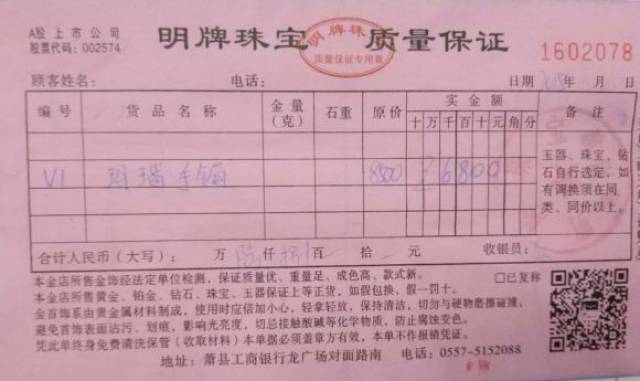 A股上市公司
股票代码：002574
明牌珠宝 质量保证
明牌珠
质量保证专用章
1602078
顾客姓名： 电话： 日期 年 月 日
编号 货品名称 金量（克） 石重 原价 实金额 备注
十 万 千 百 十 元 角 分
V1 玛瑙手镯 8500 6800
玉器、珠宝、钻
石自行选定，如
有调换须在同
类、同价以上。
合计人民币（大写）： 万 陆 捌 百 十 元 收银员：
本金店所售金饰经法定单位检测，保证质量优、重量足、成色高、款式新。 □已复称
本金店所售黄金、铂金、钻石、珠宝、玉器保证上等正货，如假包换，假一罚十。
金首饰系由贵金属材料制成，使用时应倍加小心，轻拿轻放，保持清洁，切勿与硬物磨擦碰撞，
避免首饰表面沾污、划痕，影响光亮度，切忌接触酸碱等化学物质，防止腐蚀变色。
凭此单终身免费清洗保管（收取材料）本单据必须盖章方有效，本单不作报销凭证。
地址：萧县工商银行龙广场对面路南 电话：0557-5152088